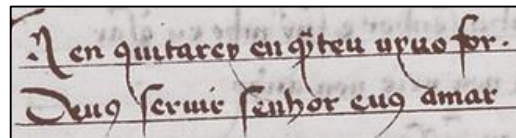 Nen quitarey en q̃teu uyuo for.
Deuꝯ seruir senhor euꝯ amar